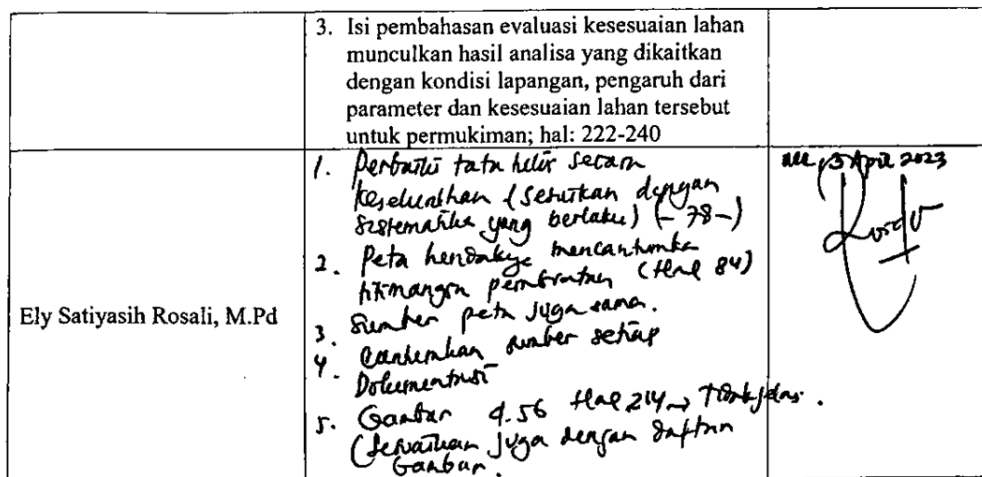 3. Isi pembahasan evaluasi kesesuaian lahan
munculkan hasil analisa yang dikaitkan
dengan kondisi lapangan, pengaruh dari
parameter dan kesesuaian lahan tersebut
untuk permukiman; hal: 222-240
Ely Satiyasih Rosali, M.Pd
1. Perbaiki tata tulis secara
keseluruhan (sesuaikan dengan
sistematika yang berlaku) (-78-)
2. Peta hendaknya mencantumkan
pembuatan (Hal 84)
3. Sumber peta juga sama.
4. Cantumkan sumber setiap
Dokumentasi
5. Gambar 4.56 Hal 214 → tidak jelas.
(sesuaikan juga dengan daftar
Gambar.
Acc, 3 April 2023